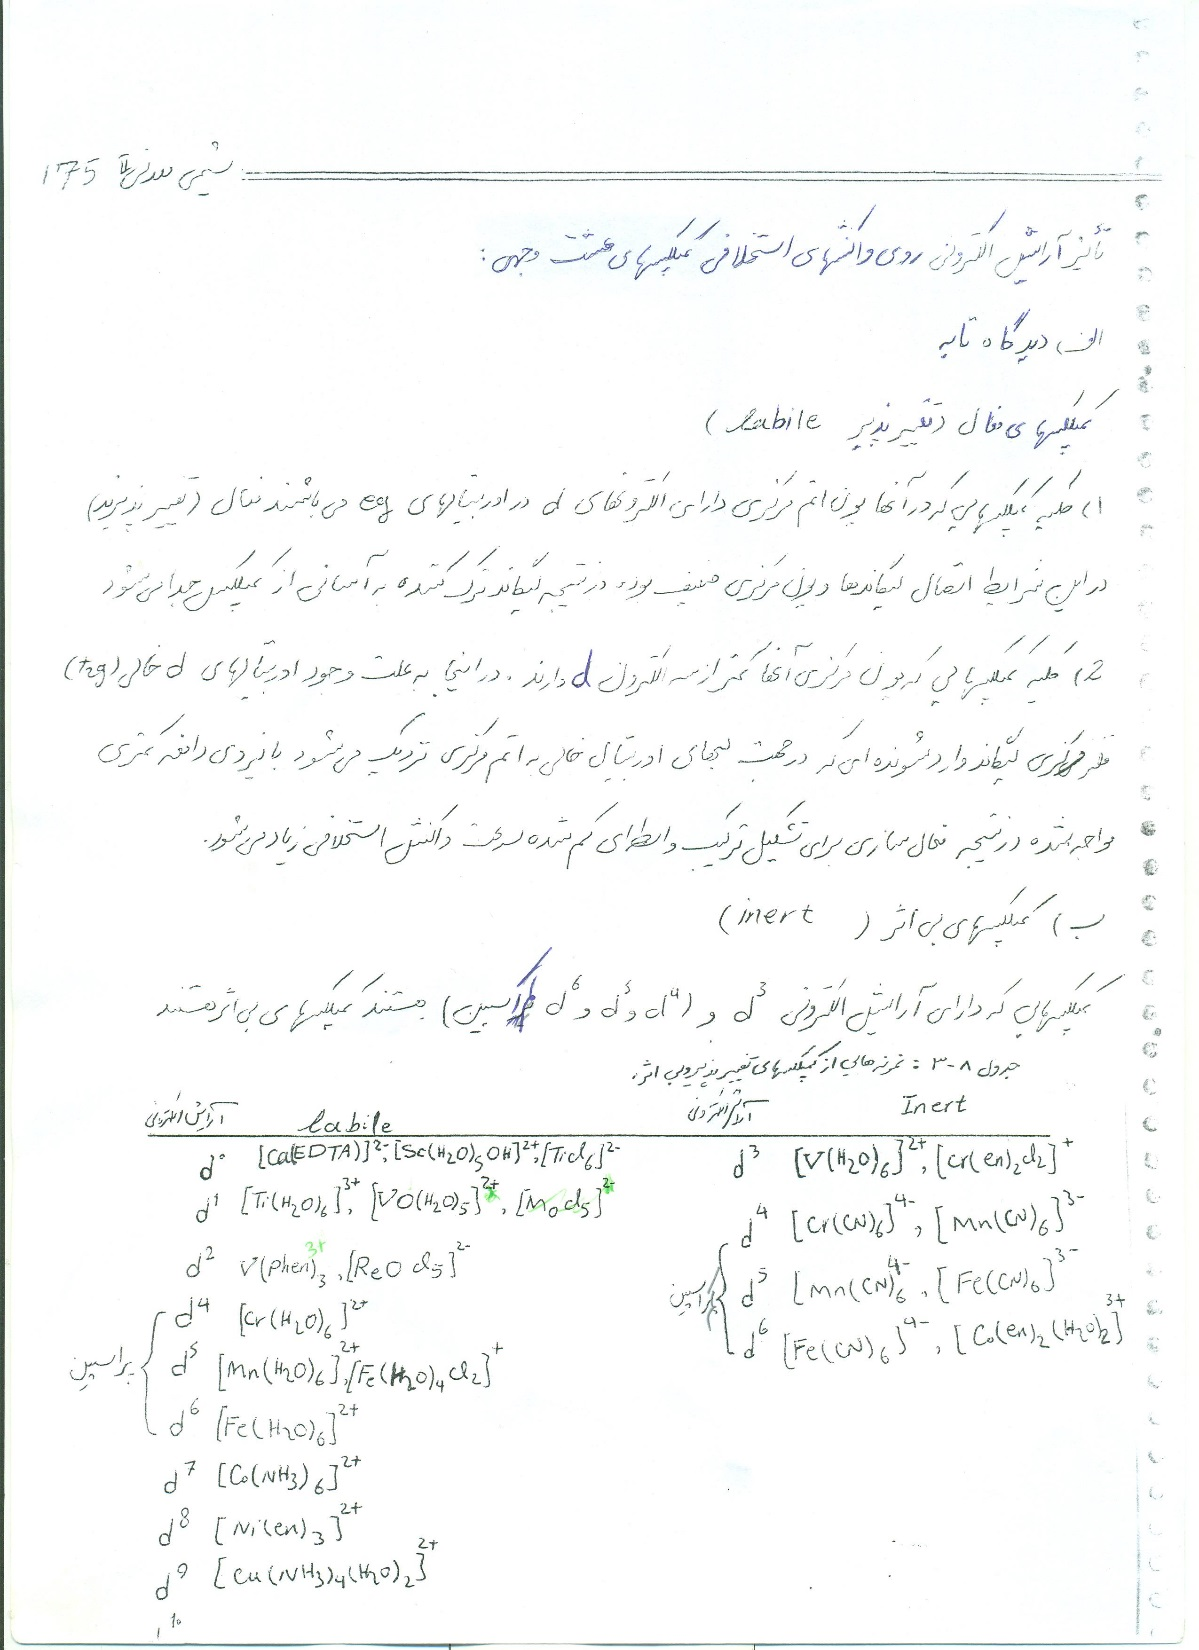 شیمی معدنی II 175
تأثیر آرایش الکترونی روی واکنشهای استخلافی کمپلکسهای هشت وجهی:
الف) دیدگاه تابه
کمپلکسهای فعال (تغییر پذیر labile)
1) کلیه کمپلکسهایی که در آنها یون اتم مرکزی دارای الکترونهای d در اوربیتالهای eg می باشند فعال (تغییر پذیرند)
در این شرایط اتصال لیگاندها و یون مرکزی ضعیف بوده در نتیجه لیگاند ترک کننده به آسانی از کمپلکس جدا می شود
2) کلیه کمپلکسهایی که یون مرکزی آنها کمتر از سه الکترون d دارند. در اینجا به علت وجود اوربیتالهای d خالی (t2g)
فلز مرکزی لیگاند وارد شونده ای که در جهت لبهای اوربیتال خالی به اتم مرکزی نزدیک می شود با نیروی دافعه کمتری
مواجه شده در نتیجه فعال سازی برای تشکیل ترکیب واسطه ای کم شده سرعت واکنش استخلافی زیاد می شود.
ب) کمپلکسهای بی اثر (inert)
کمپلکسهایی که دارای آرایش الکترونی d³ و (d⁴ و d⁵ و d⁶ کم اسپین) هستند کمپلکسهای بی اثر هستند
جدول ۸-۳: نمونه هایی از کمپلکسهای تغییر پذیر و بی اثر.
آرایش الکترونی labile آرایش الکترونی Inert
d⁰ [Ca(EDTA)]²⁻, [Sc(H₂O)₅OH]²⁺, [TiCl₆]²⁻ d³ [V(H₂O)₆]²⁺, [Cr(en)₂Cl₂]⁺
d¹ [Ti(H₂O)₆]³⁺, [VO(H₂O)₅]²⁺, [MoCl₅]²⁻ d⁴ [Cr(CN)₆]⁴⁻, [Mn(CN)₆]³⁻
d² V(phen)₃³⁺, [ReOCl₅]²⁻ d⁵ [Mn(CN)₆⁴⁻, [Fe(CN)₆]³⁻
d⁴ [Cr(H₂O)₆]²⁺ d⁶ [Fe(CN)₆]⁴⁻, [Co(en)₂(H₂O)₂]³⁺
پراسپین d⁵ [Mn(H₂O)₆]²⁺, [Fe(H₂O)₄Cl₂]⁺
d⁶ [Fe(H₂O)₆]²⁺
d⁷ [Co(NH₃)₆]²⁺
d⁸ [Ni(en)₃]²⁺
d⁹ [Cu(NH₃)₄(H₂O)₂]²⁺